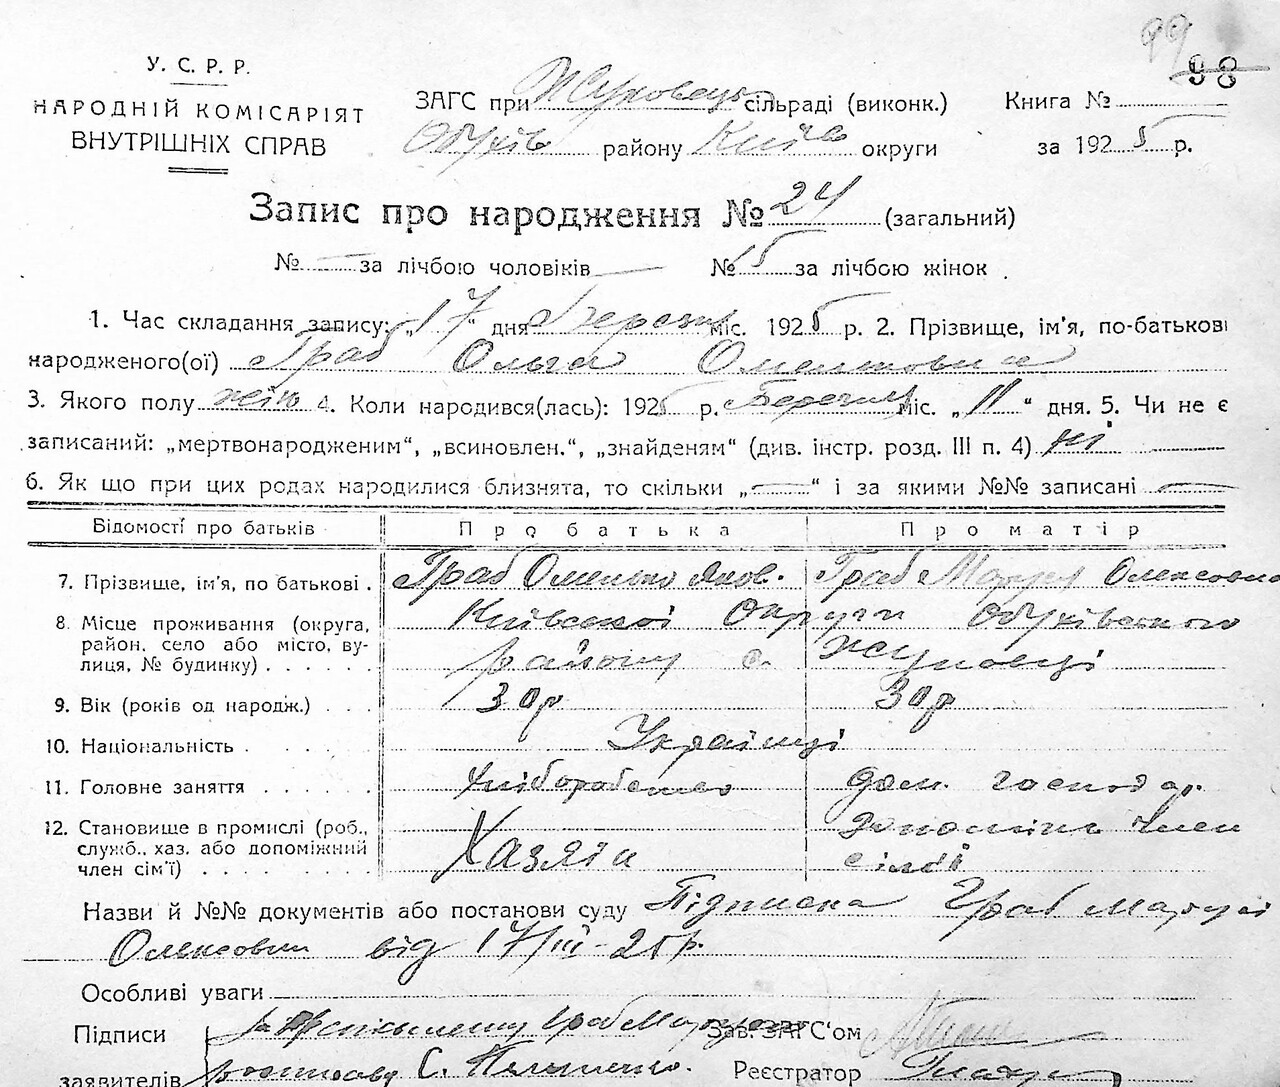 99
98
У. С. Р. Р.
НАРОДНІЙ КОМІСАРІЯТ
ВНУТРІШНІХ СПРАВ
ЗАГС при Жуковец сільраді (виконк.)
Обухів району Київ округи
Книга №
за 1925 р.
Запис про народження № 24 (загальний)
№ — за лічбою чоловіків — № 15 за лічбою жінок
1. Час складання запису: „17“ дня березня міс. 1925 р. 2. Прізвище, ім'я, по-батькові
народженого(ої) Граб Ольга Омелковна
3. Якого полу жін 4. Коли народився(лась): 1925 р. Березня міс. „11“ дня. 5. Чи не є
записаний: „мертвонародженим“, „всиновлен.“, „знайденям“ (див. інстр. розд. III п. 4) ні
6. Як що при цих родах народилися близнята, то скільки „—“ і за якими №№ записані —
Відомості про батьків Про батька Про матір
7. Прізвище, ім'я, по батькові . Граб Омелько Яков. Граб Маруся Олексовна
8. Місце проживання (округа, район, село або місто, вулиця, № будинку) . . . . . Київської Округи Обухівського
району с. Жуковці
9. Вік (років од народж.) . . . 30 р 30 р
10. Національність . . . . . Українці
11. Головне заняття . . . . . . хліборобство дом. господар.
12. Становище в промислі (роб., служб., хаз. або допоміжний член сім'ї) . . . . . . . Хазяїн допоміжн член
сімʼї
Назви й №№ документів або постанови суду Підписка Граб Марусі
Олексовни від 17/III-25 р.
Особливі уваги
Підписи
заявителів
за неписьменну Граб Марусю
розписався С.
Зав. ЗАГС'ом
Реєстратор